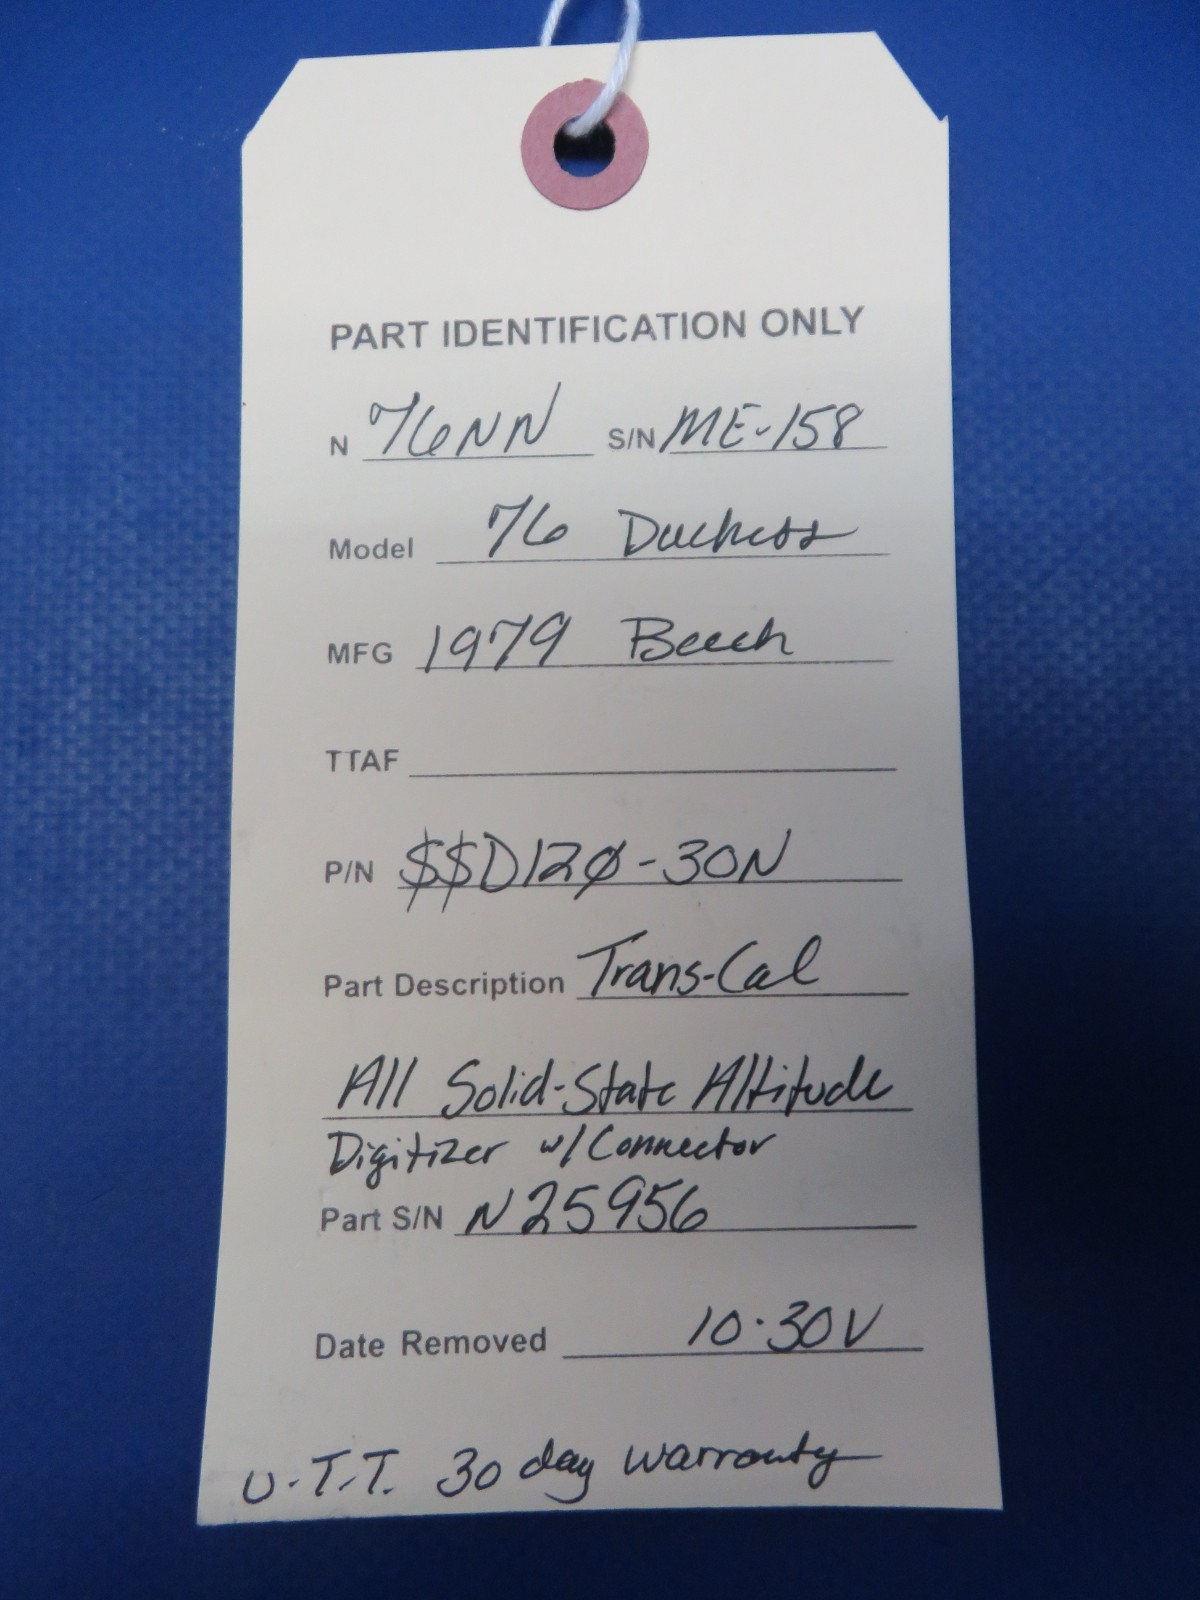 PART IDENTIFICATION ONLY
N 76NN S/N ME-158
Model 76 Duchess
MFG 1979 Beech
TTAF
P/N $$D12Ø-30N
Part Description Trans-Cal
All Solid-State Altitude
Digitizer w/Connector
Part S/N N25956
Date Removed 10-30V
U.T.T. 30 day warranty